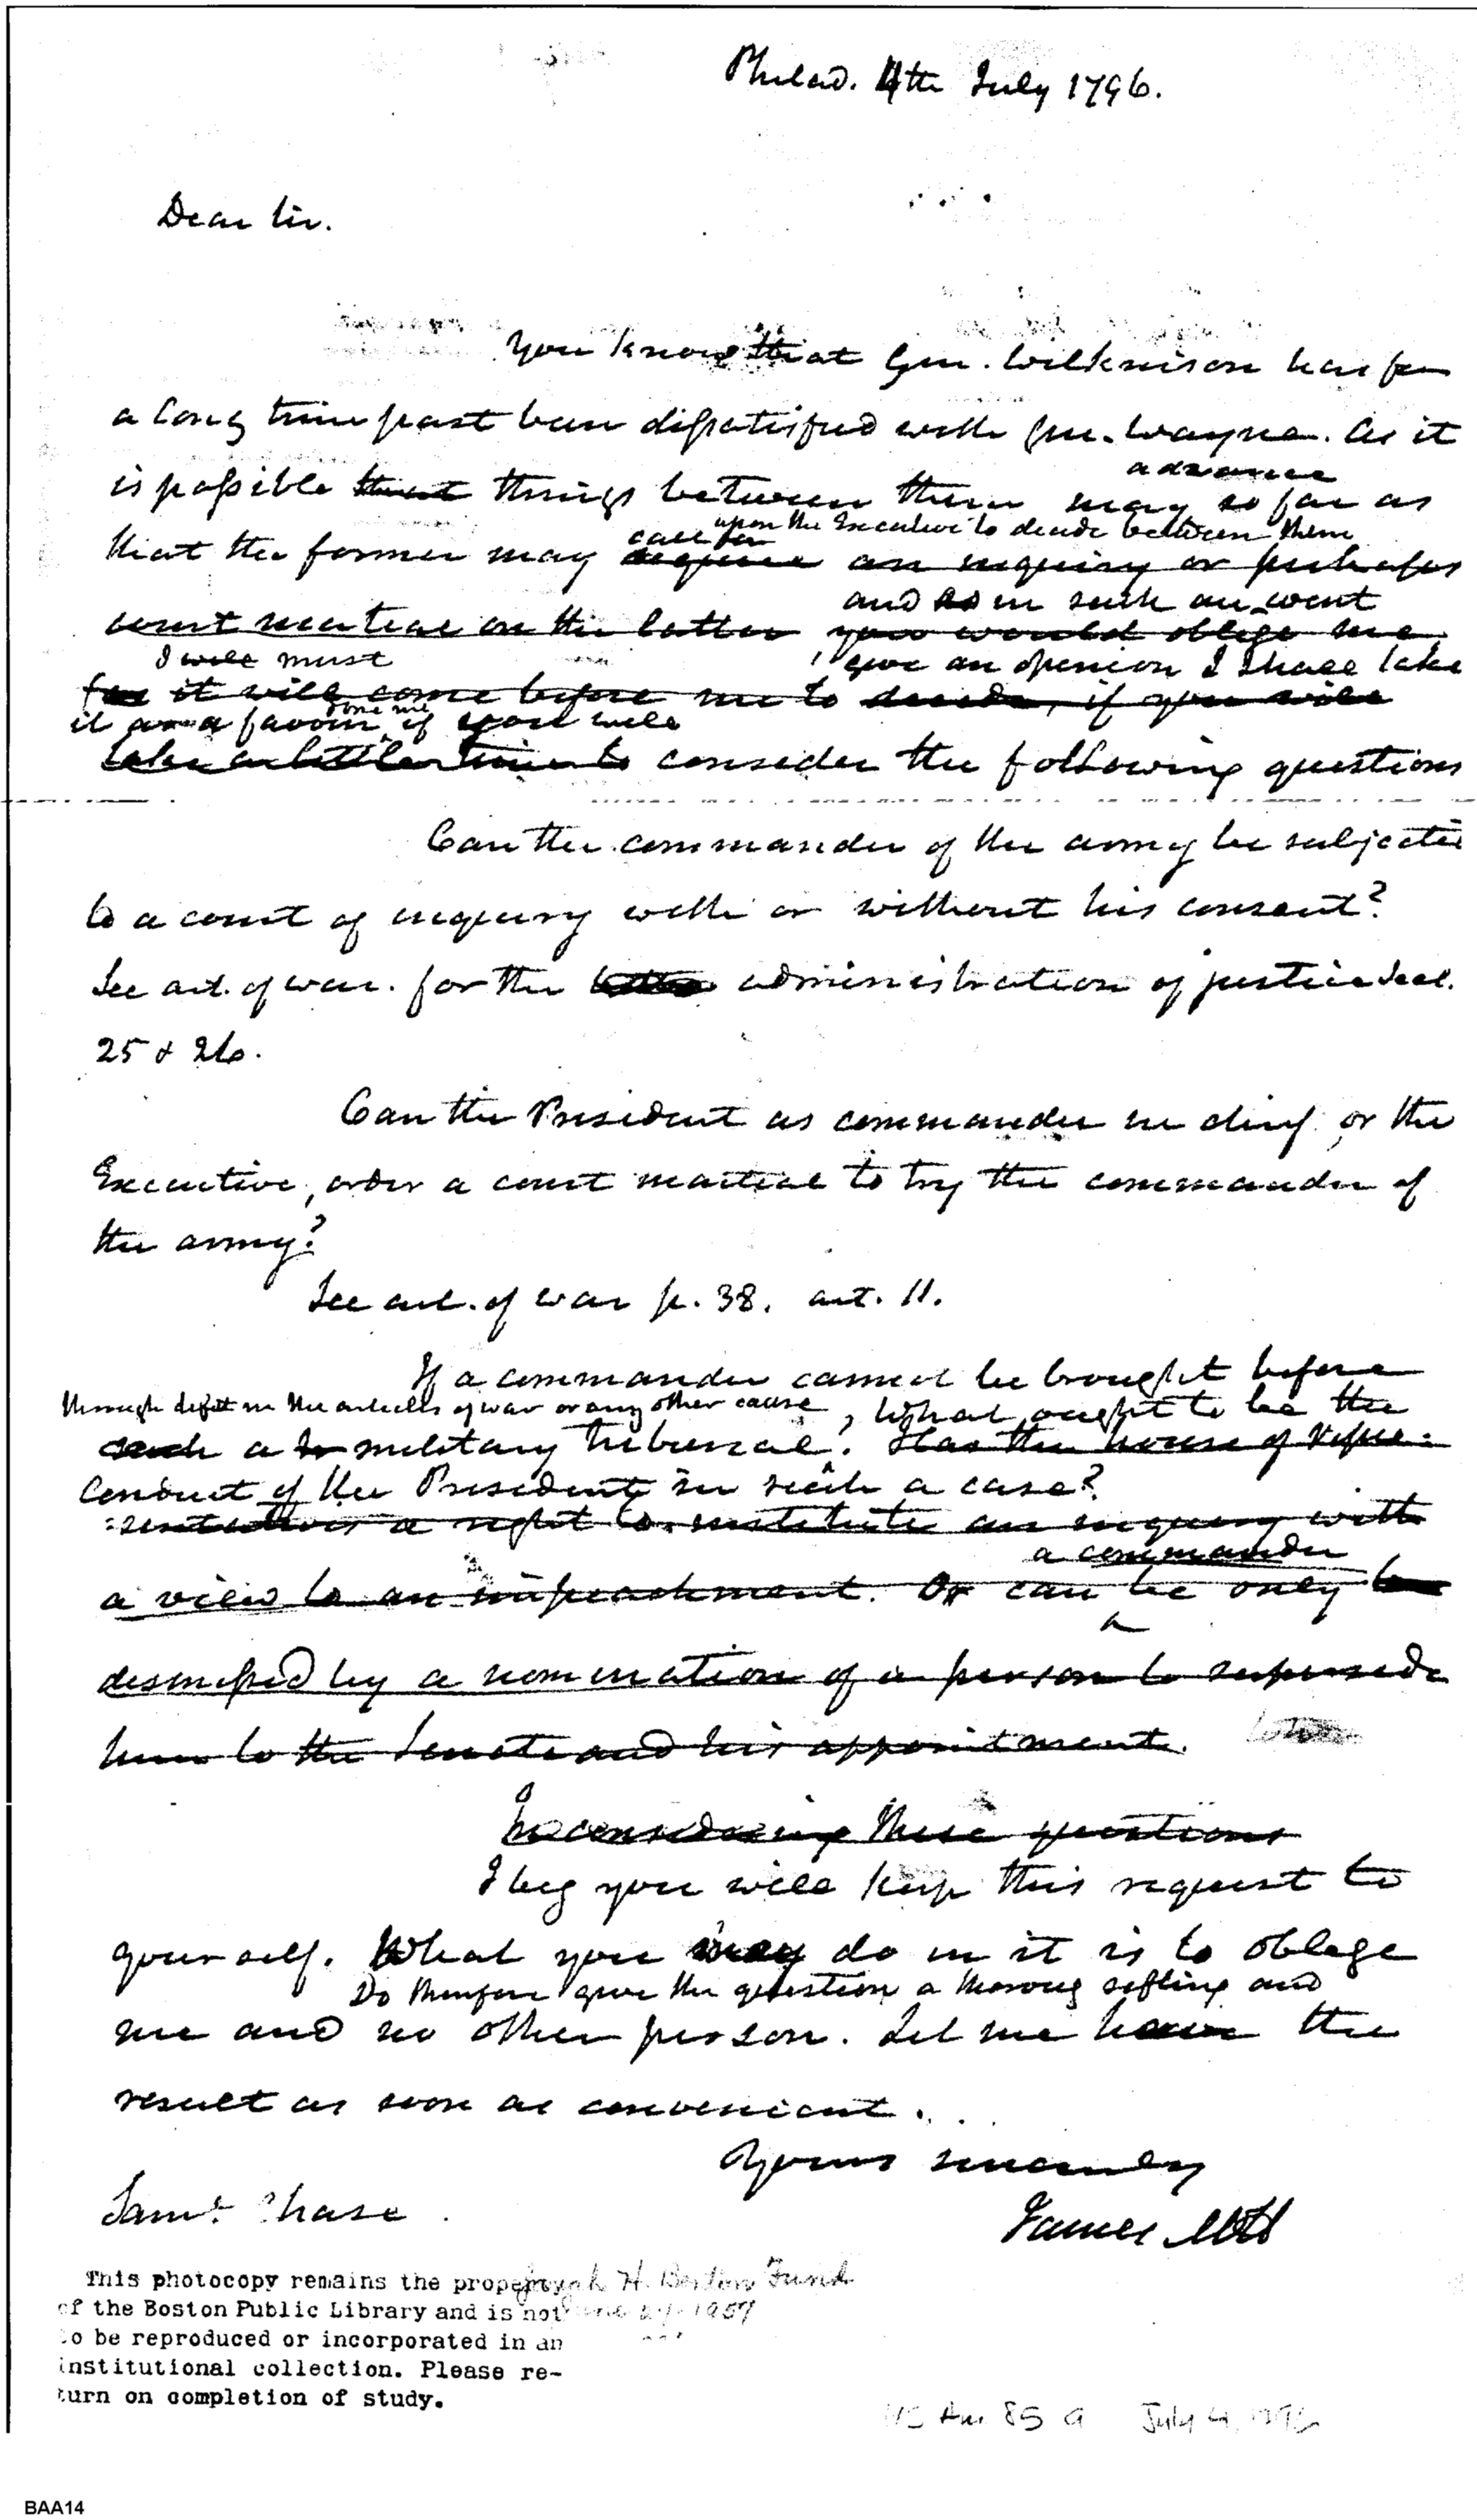 Philad. 4th July 1796.
Dear Sir.
You know that Gen. Wilkinson has for
a long time past been dissatisfied with Gen. Wayne. As it
advance
is possible that things between them may so far as
upon the Executive to decide between them
call for
that the former may require an inquiry or perhaps
and as in such an event
court martial on the latter you would oblige me,
I will must give an opinion I shall take
for it will come before me to decide, if you will
it as a favour done me if you will
take a little time to consider the following questions
Can the commander of the army be subjected
to a court of inquiry with or without his consent?
See art. of war. for the administration of justice Sect.
25 & 26.
Can the President as commander in chief, or the
Executive, order a court martial to try the commander of
the army?
See art. of war p. 38. art. 11.
If a commander cannot be brought before
through defect in the articles of war or any other cause, What ought to be the
such a military tribunal? Has the house of Repre-
conduct of the President in such a case?
=sentatives a right to institute an inquiry with
a commander
a view to an impeachment. Or can be only
dismissed by a nomination of a person to supersede
him to the Senate and his appointment.
In considering these questions
I beg you will keep this request to
yourself. What you may do in it is to oblege
Do therefore give the question a thoroug sifting and
me and no other person. Let me have the
result as soon as convenient.
Yours sincerely
James McH
Saml. Chase
This photocopy remains the property
of the Boston Public Library and is not
to be reproduced or incorporated in an
institutional collection. Please re-
turn on completion of study.
H. Benton Fund
1957
MS Am. 85 9 July 4, 1796
BAA14